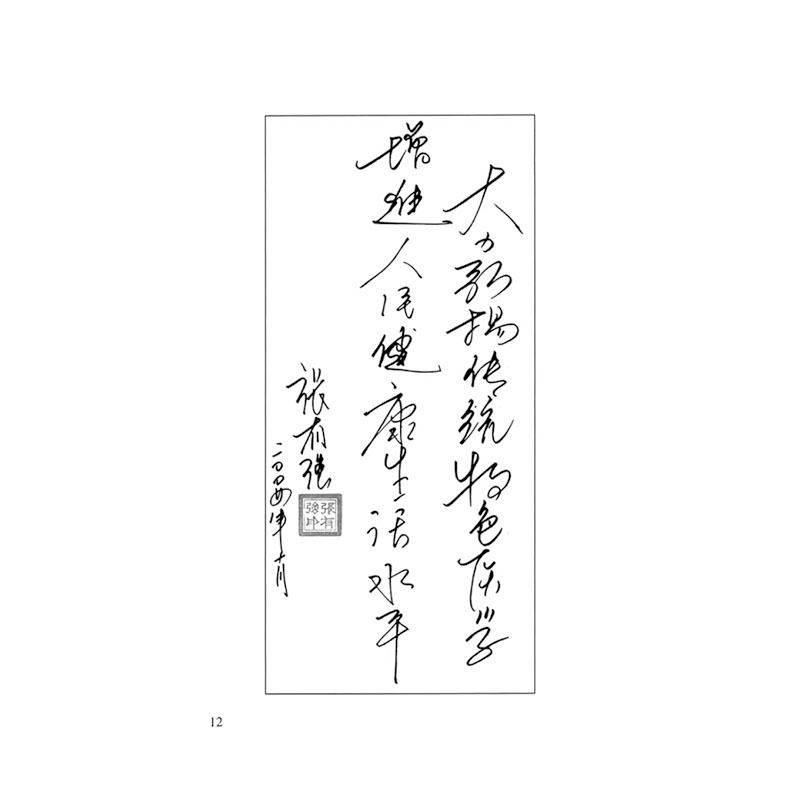 大力弘扬传统特色医学
增进人民健康生活水平
張有强
二〇〇四年十月
張有
強印
12